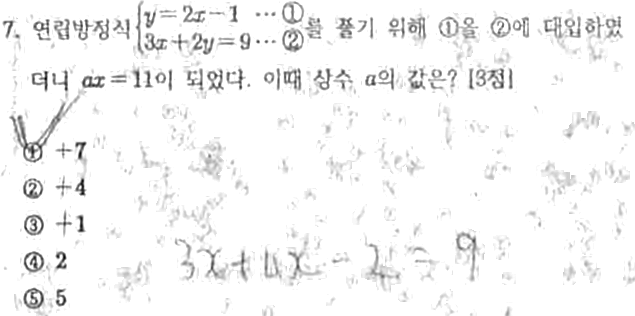 7. 연립방정식 { y=2x-1 … ① 3x+2y=9 … ② 를 풀기 위해 ①을 ②에 대입하였
더니 ax=11이 되었다. 이때 상수 a의 값은? [3점]
① +7
② +4
③ +1
④ 2
⑤ 5
3x+4x-2=9